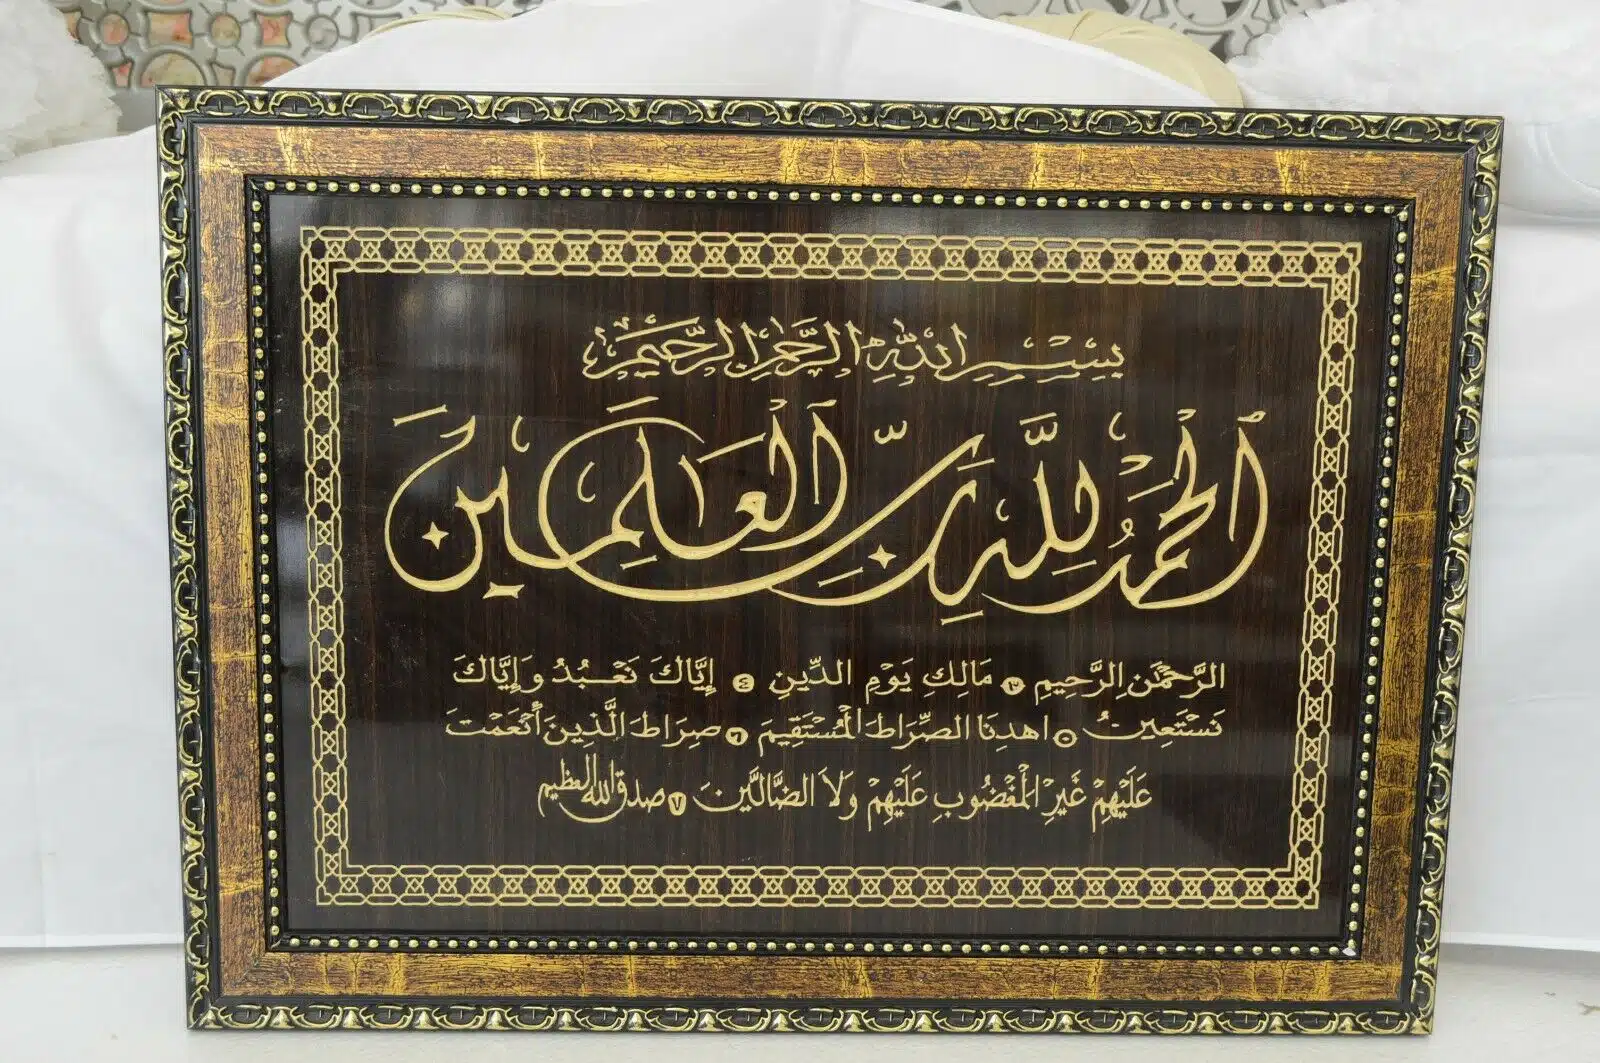 بِسْمِ اللهِ الرَّحْمٰنِ الرَّحِيمِ
الْحَمْدُ لِلّٰهِ رَبِّ الْعَالَمِينَ
الرَّحْمٰنِ الرَّحِيمِ ٣ مَالِكِ يَوْمِ الدِّينِ ٤ إِيَّاكَ نَعْبُدُ وَإِيَّاكَ
نَسْتَعِينُ ٥ اهْدِنَا الصِّرَاطَ الْمُسْتَقِيمَ ٦ صِرَاطَ الَّذِينَ أَنْعَمْتَ
عَلَيْهِمْ غَيْرِ الْمَغْضُوبِ عَلَيْهِمْ وَلَا الضَّالِّينَ ٧ صدق الله العظيم